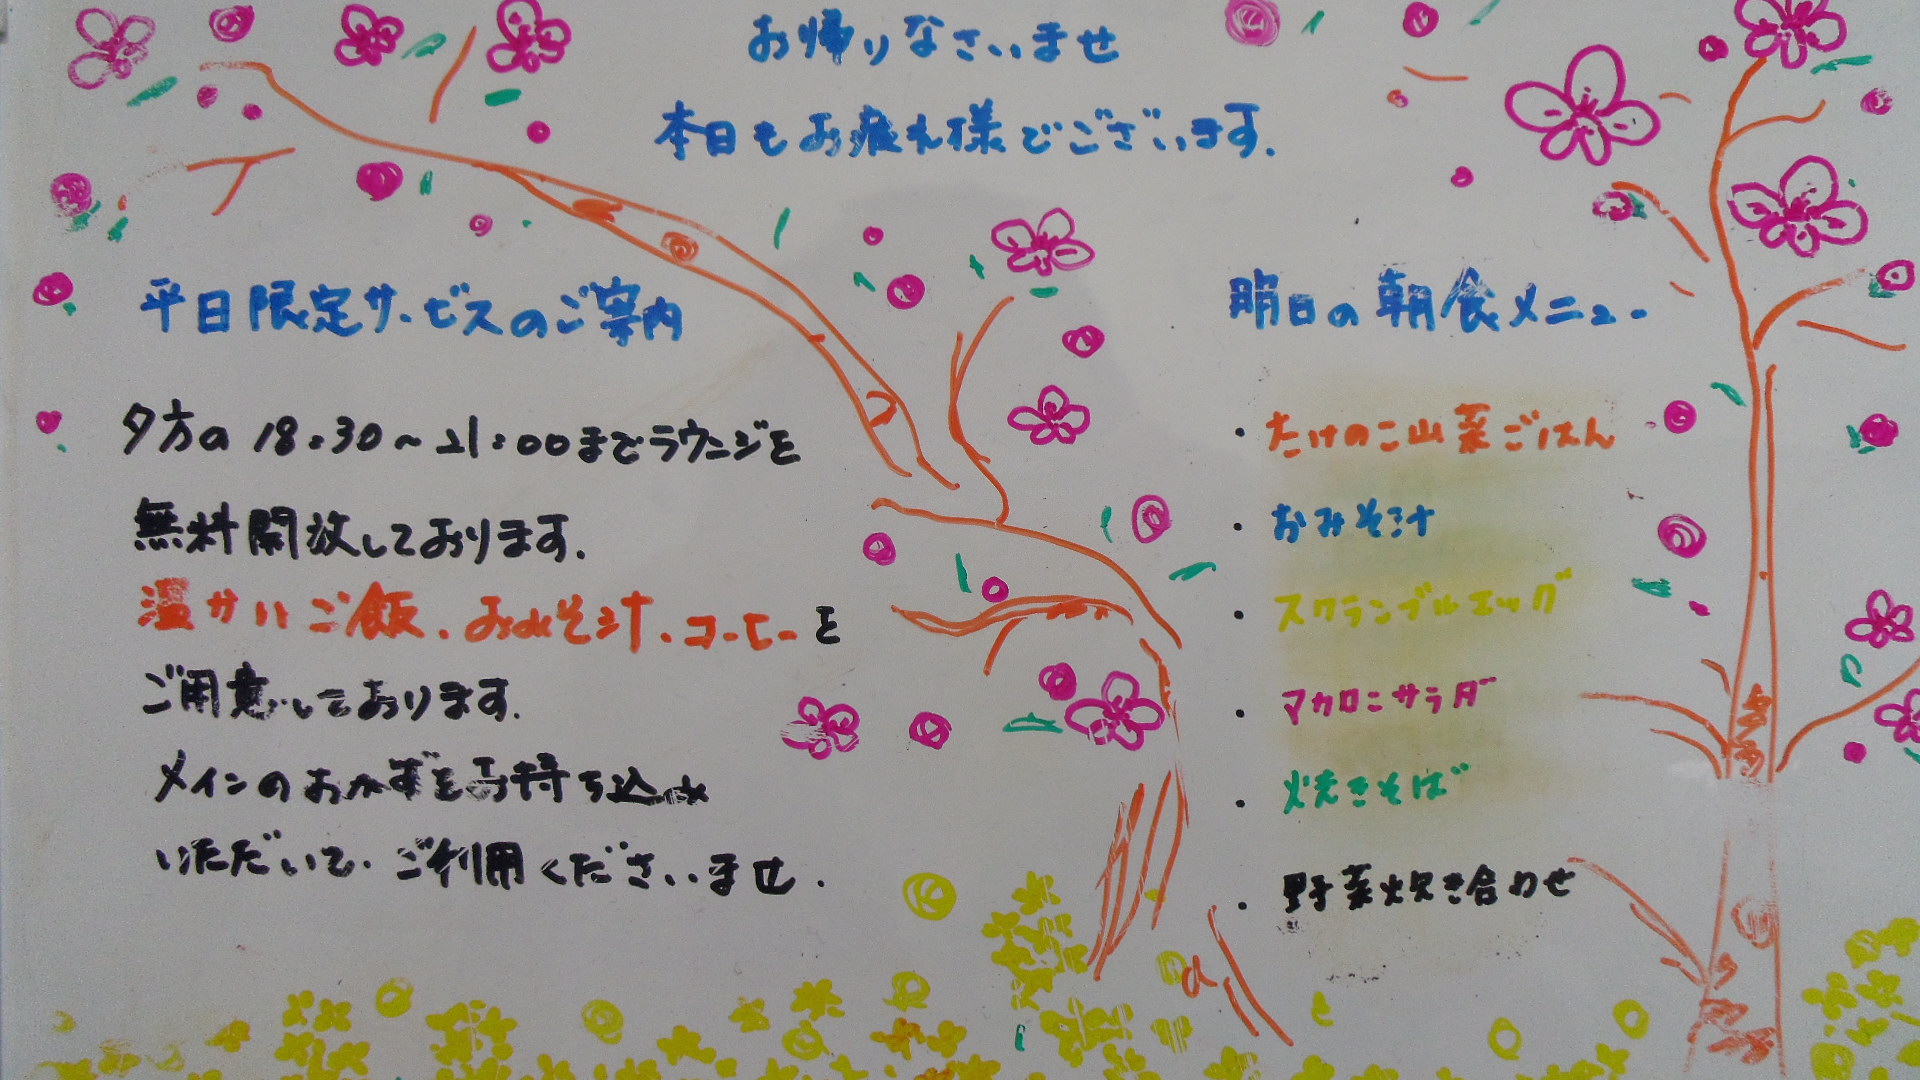 お帰りなさいませ
本日もお疲れ様でございます.
平日限定サービスのご案内
夕方の18:30~21:00までラウンジを
無料開放しております.
温かいご飯、おみそ汁、コーヒーを
ご用意しております.
メインのおかずをお持ち込み
いただいて、ご利用くださいませ.
明日の朝食メニュー
・たけのこ山菜ごはん
・おみそ汁
・スクランブルエッグ
・マカロニサラダ
・焼きそば
・野菜炊き合わせ